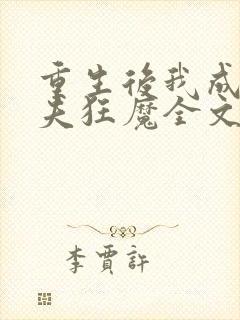 重生後我成
夫狂魔全文
李賈許